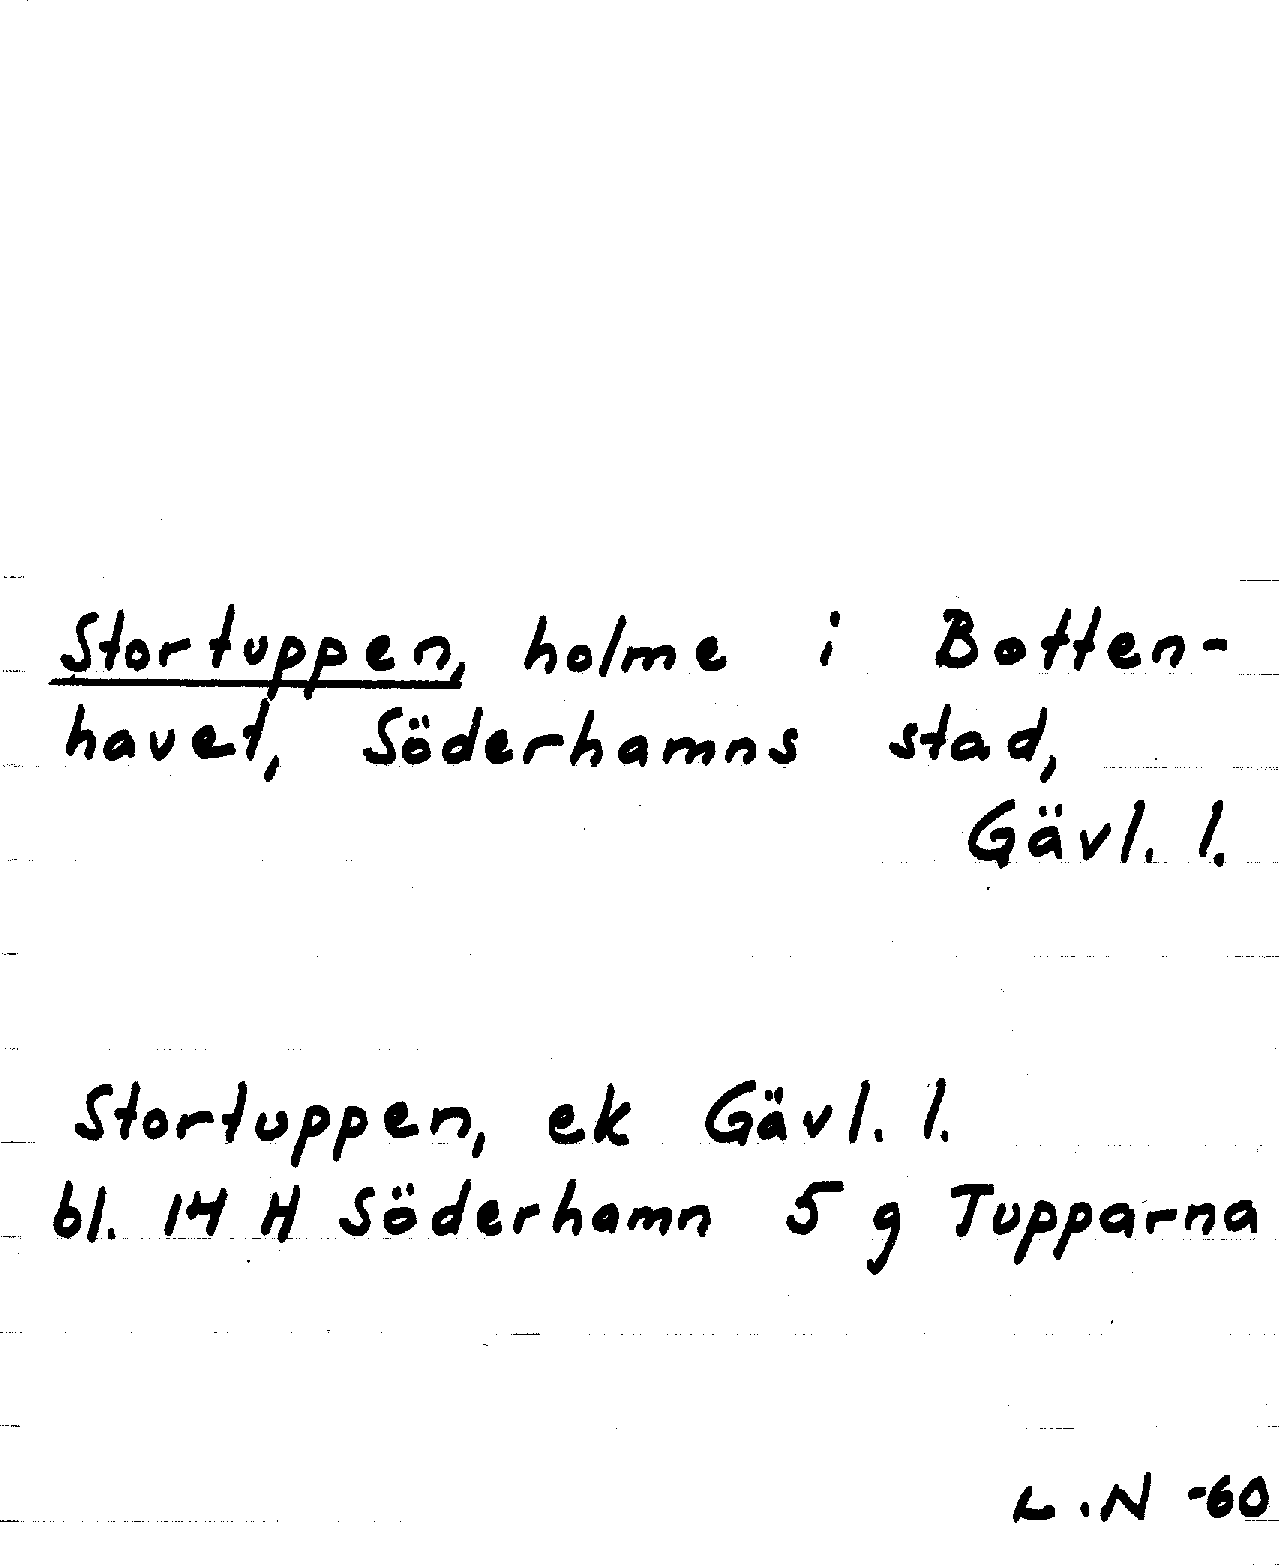 Stortuppen, holme i Botten-
havet, Söderhamns stad,
Gävl. l.
Stortuppen, ek Gävl. l.
bl. 14 H Söderhamn 5 g Tupparna
L.N -60